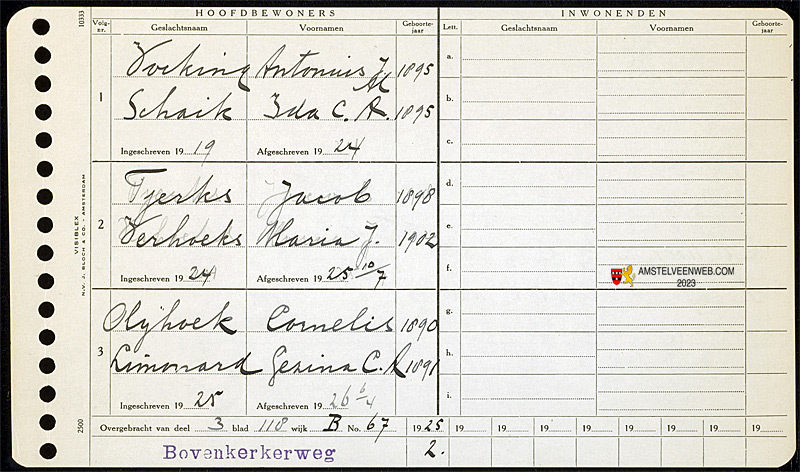 HOOFDBEWONERS INWONENDEN
Volg-nr. Geslachtsnaam Voornamen Geboorte-jaar Lett. Geslachtsnaam Voornamen Geboorte-jaar
10333
1
Antonius J. 1895 a.
Schaik Ida C. R. 1895 b.
Ingeschreven 19 19 Afgeschreven 19 24 c.
2
Tjerks Jacob 1898 d.
Verhoeks Maria J. 1902 e.
Ingeschreven 19 24 Afgeschreven 19 25 10/7 f.
AMSTELVEENWEB.COM
2023
3
Olijhoek Cornelis 1890 g.
Gesina C. 1891 h.
Ingeschreven 19 25 Afgeschreven 19 26 6/4 i.
VISIBLEX
N.V. J. BLOCH & CO. - AMSTERDAM
2500
Overgebracht van deel 3 blad 118 wijk B No. 67 19 25 19 19 19 19 19 19 19 19
Bovenkerkerweg 2.